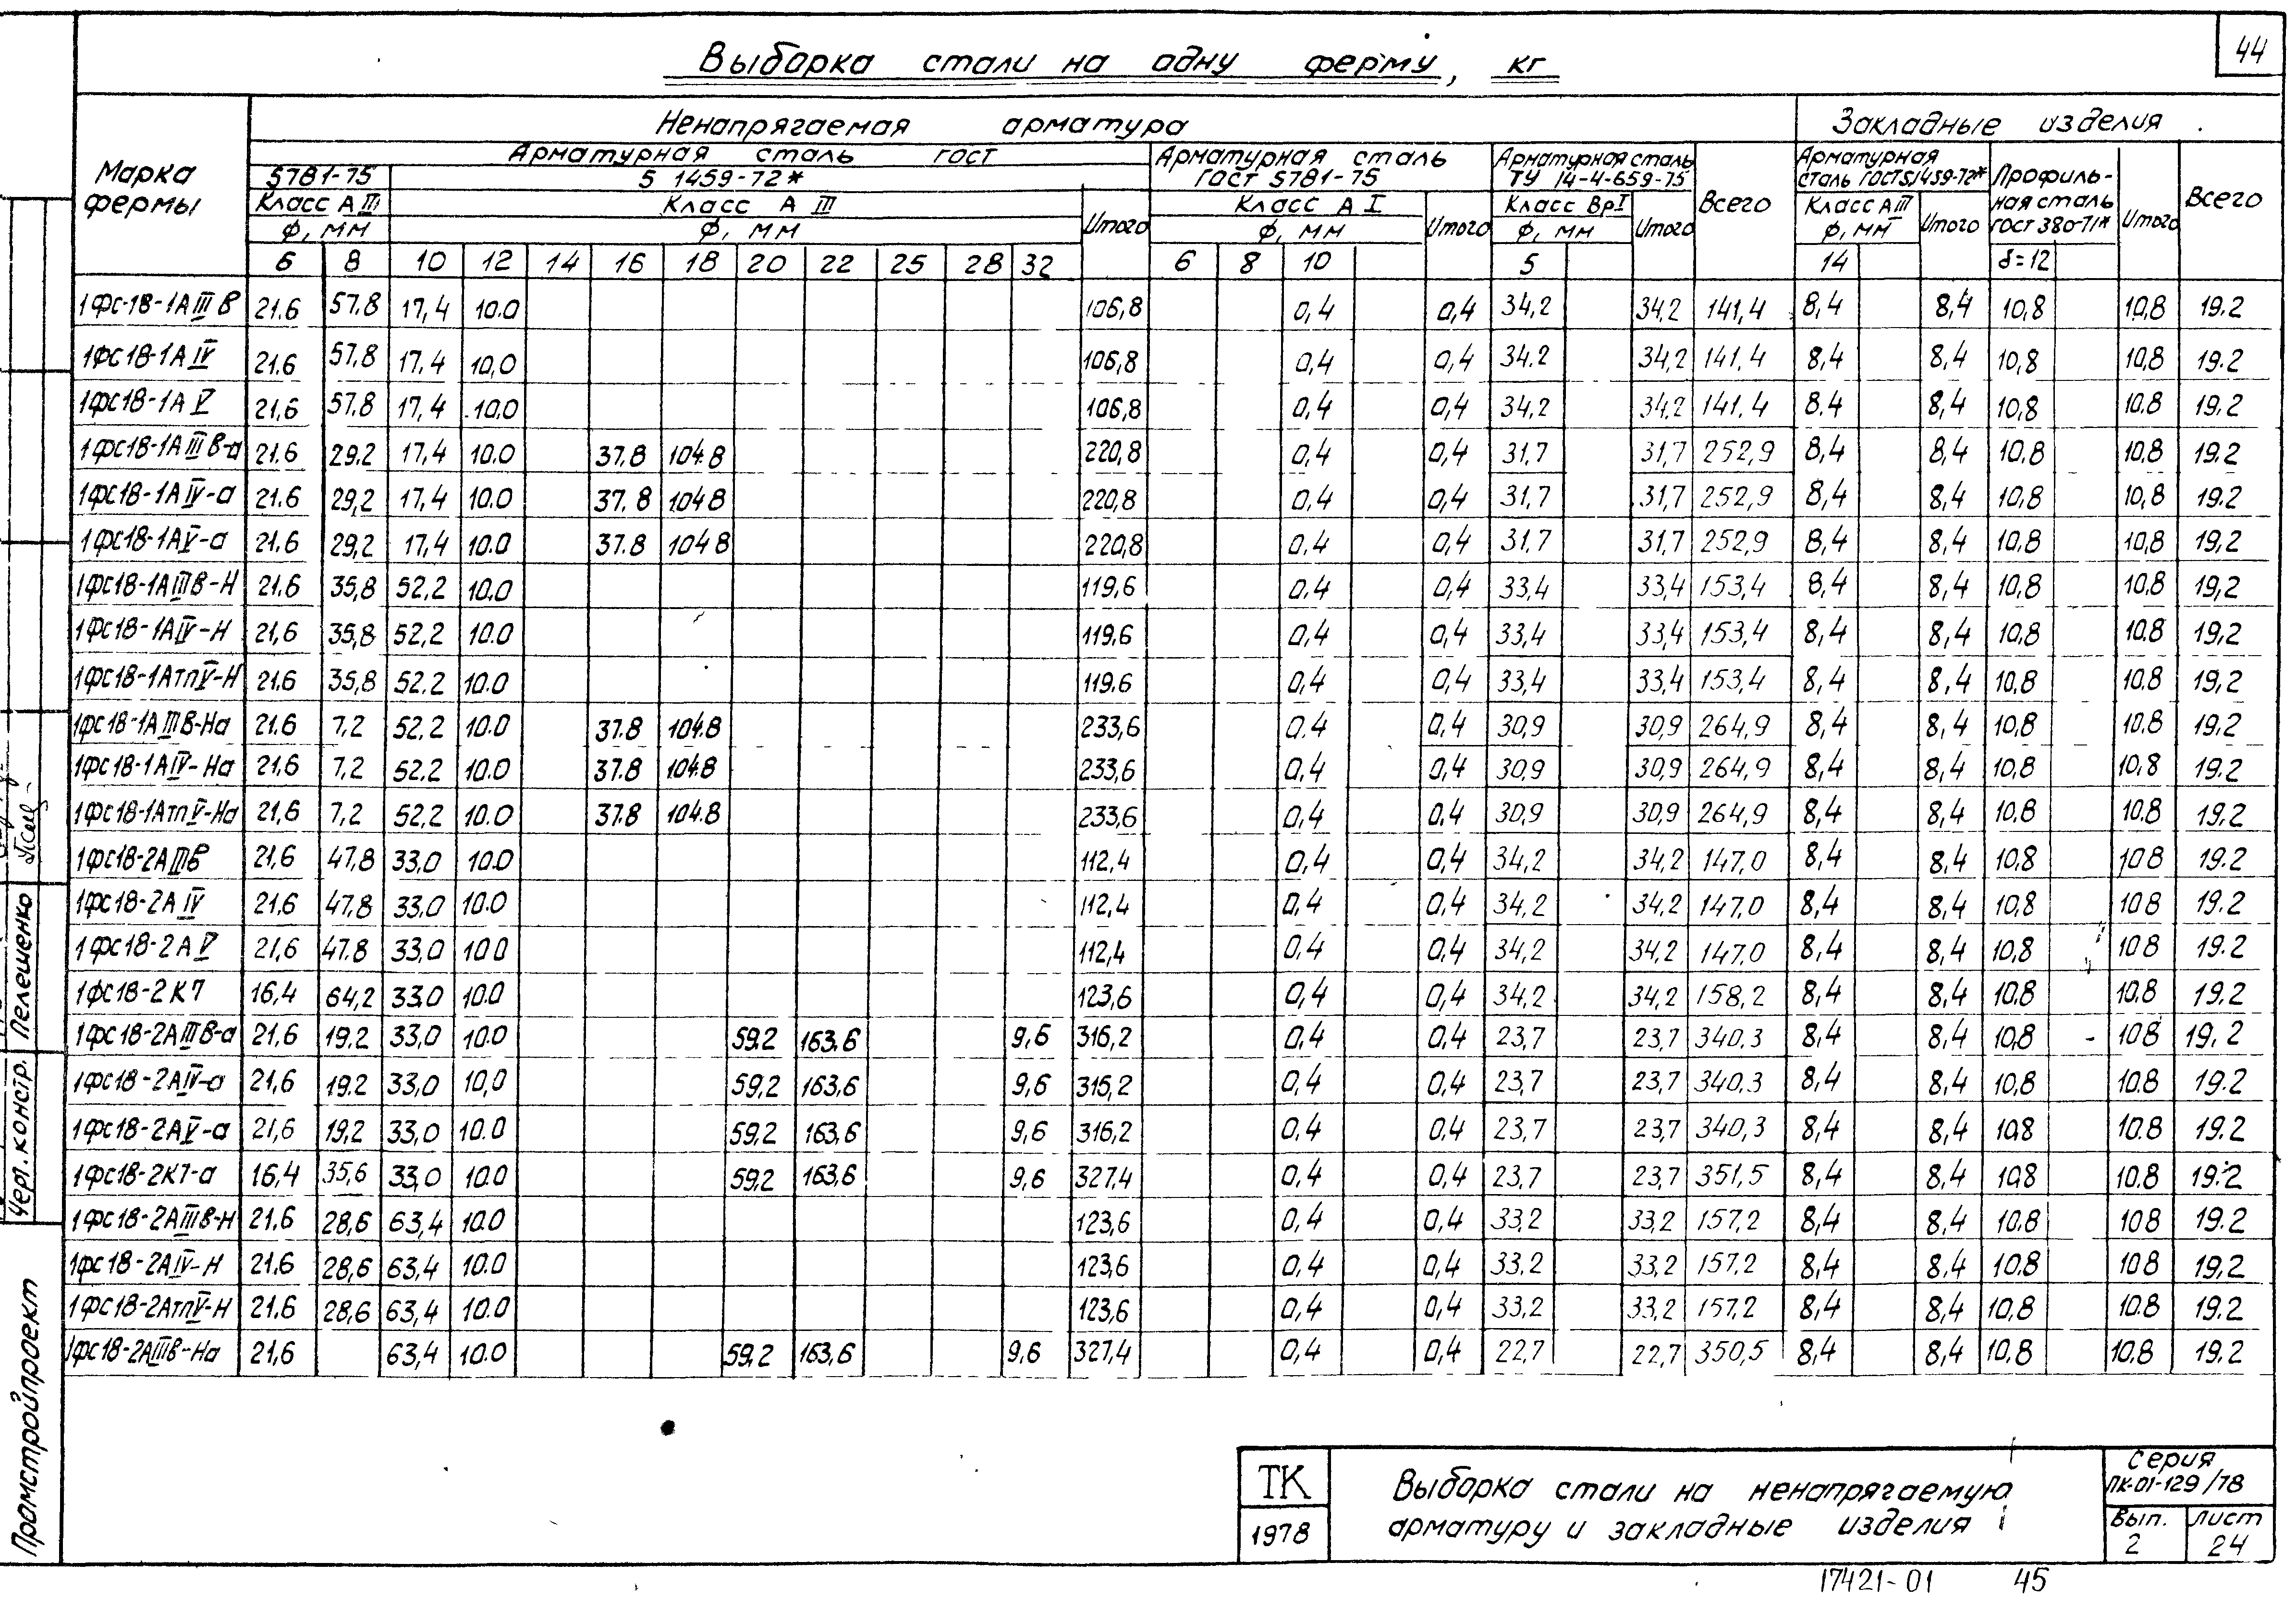 44
Выборка стали на одну ферму, кг
Марка фермы
Ненапрягаемая арматура
Закладные изделия
Арматурная сталь ГОСТ
Арматурная сталь ГОСТ 5781-75
Арматурная сталь ТУ 14-4-659-75
Всего
Арматурная сталь ГОСТ 51459-72*
Профильная сталь ГОСТ 380-71*
Итого
Всего
5781-75
5 1459-72*
Класс А III
Класс А III
Итого
Класс А I
Итого
Класс ВрI
Итого
Класс АIII
Итого
ф, мм
ф, мм
ф, мм
ф, мм
ф, мм
6 8 10 12 14 16 18 20 22 25 28 32 6 8 10 5 14 δ=12
1ФС-18-1АIIIв 21.6 57.8 17,4 10.0 106,8 0,4 0,4 34,2 34,2 141,4 8,4 8,4 10,8 10,8 19.2
1ФС18-1АIV 21.6 57,8 17,4 10,0 106,8 0,4 0,4 34.2 34,2 141,4 8,4 8,4 10,8 10,8 19.2
1ФС18-1АV 21,6 57,8 17,4 10.0 106,8 0,4 0,4 34,2 34,2 141,4 8.4 8,4 10,8 10.8 19.2
1ФС18-1АIIIв-а 21.6 29.2 17,4 10.0 37.8 104.8 220,8 0,4 0,4 31,7 31,7 252,9 8,4 8,4 10.8 10,8 19.2
1ФС18-1АIV-а 21.6 29,2 17,4 10.0 37.8 104.8 220,8 0,4 0,4 31,7 31,7 252,9 8,4 8,4 10,8 10,8 19.2
1ФС18-1АV-а 21.6 29,2 17,4 10.0 37.8 104.8 220,8 0,4 0,4 31,7 31,7 252,9 8,4 8,4 10.8 10,8 19,2
1ФС18-1АIIIв-Н 21.6 35,8 52.2 10.0 119,6 0,4 0,4 33,4 33,4 153,4 8,4 8,4 10,8 10.8 19,2
1ФС18-1АIV-Н 21,6 35,8 52,2 10.0 119.6 0,4 0,4 33,4 33,4 153,4 8,4 8,4 10,8 10.8 19,2
1ФС18-1АтпV-Н 21.6 35,8 52.2 10.0 119.6 0,4 0,4 33,4 33,4 153,4 8,4 8,4 10,8 10.8 19,2
1ФС18-1АIIIв-На 21.6 7,2 52,2 10.0 37.8 104.8 233,6 0.4 0,4 30,9 30,9 264,9 8,4 8,4 10,8 10.8 19.2
1ФС18-1АIV-На 21.6 7,2 52.2 10.0 37.8 104.8 233,6 0,4 0,4 30,9 30,9 264,9 8,4 8,4 10,8 10,8 19.2
1ФС18-1АтпV-На 21,6 7,2 52,2 10.0 37.8 104.8 233,6 0,4 0,4 30,9 30,9 264,9 8,4 8,4 10,8 10.8 19.2
1ФС18-2АIIIв 21,6 47,8 33,0 10.0 112,4 0,4 0,4 34,2 34,2 147,0 8,4 8,4 10,8 10.8 19.2
1ФС18-2АIV 21.6 47,8 33,0 10.0 112,4 0,4 0,4 34,2 34,2 147,0 8,4 8,4 10,8 10.8 19.2
1ФС18-2АV 21,6 47.8 33,0 10.0 112,4 0,4 0,4 34,2 34,2 147,0 8,4 8,4 10,8 10.8 19.2
1ФС18-2К7 16,4 64,2 33.0 10.0 123,6 0,4 0,4 34,2 34,2 158,2 8,4 8,4 10.8 10.8 19.2
1ФС18-2АIIIв-а 21,6 19.2 33,0 10.0 59.2 163.6 9,6 316,2 0,4 0,4 23,7 23,7 340,3 8,4 8,4 10,8 10.8 19,2
1ФС18-2АIV-а 21,6 19.2 33,0 10,0 59,2 163,6 9,6 316,2 0,4 0,4 23,7 23,7 340,3 8,4 8,4 10,8 10.8 19.2
1ФС18-2АV-а 21,6 19,2 33,0 10.0 59,2 163,6 9,6 316,2 0,4 0,4 23,7 23,7 340,3 8,4 8,4 10,8 10.8 19.2
1ФС18-2К7-а 16,4 35,6 33,0 10.0 59,2 163,6 9,6 327,4 0,4 0,4 23,7 23,7 351,5 8,4 8,4 10,8 10.8 19.2
1ФС18-2АIIIв-Н 21.6 28,6 63,4 10.0 123,6 0,4 0,4 33,2 33,2 157,2 8,4 8,4 10.8 10.8 19.2
1ФС18-2АIV-Н 21.6 28,6 63,4 10.0 123,6 0,4 0,4 33,2 33,2 157,2 8,4 8,4 10.8 10.8 19,2
1ФС18-2АтпV-Н 21.6 28,6 63,4 10.0 123,6 0,4 0,4 33,2 33,2 157,2 8,4 8,4 10,8 10.8 19.2
1ФС18-2АIIIв-На 21,6 63,4 10.0 59.2 163,6 9,6 327,4 0,4 0,4 22,7 22,7 350,5 8,4 8,4 10.8 10.8 19.2
Пелешенко
Черт. констр.
Промстройпроект
ТК
1978
Выборка стали на ненапрягаемую
арматуру и закладные изделия
Серия
ПК-01-129/78
Вып. 2
Лист 24
17421-01 45